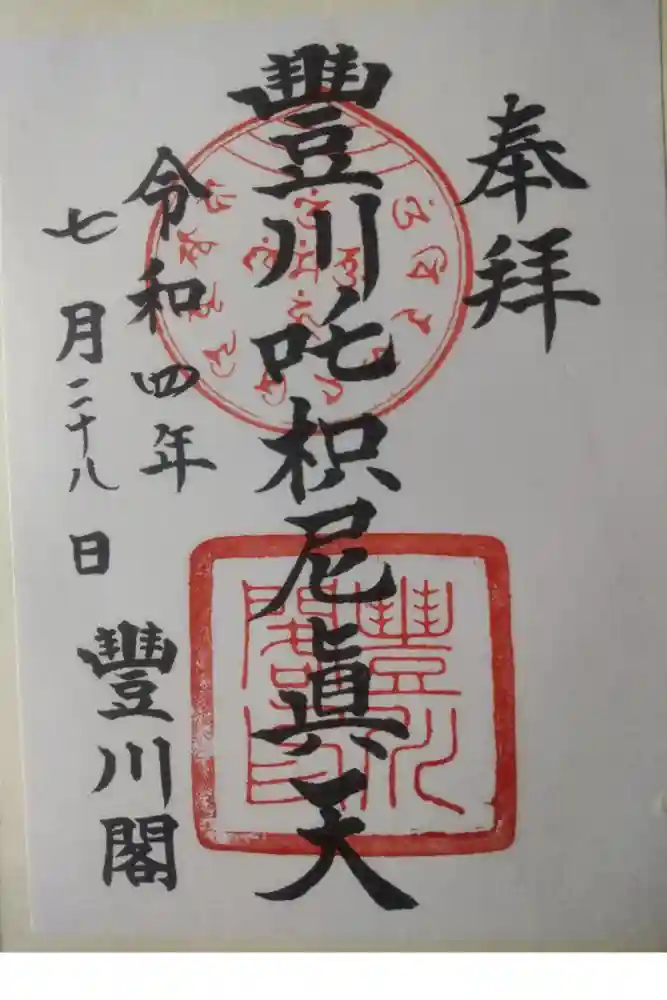 奉拝
豐川吒枳尼眞天
豐川閣印
令和四年
七月二十八日
豐川閣